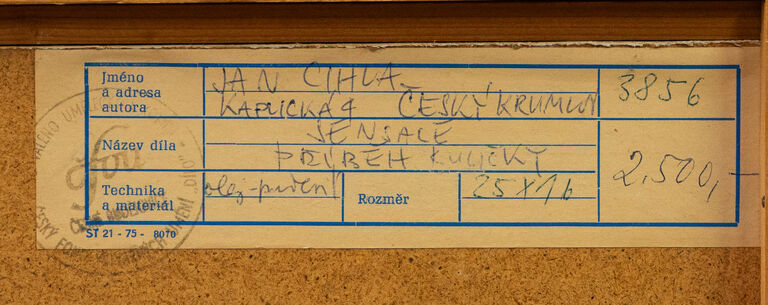 Jméno
a adresa
autora
JAN CIHLA
KAPLICKÁ 4 ČESKÝ KRUMLOV
3856
Název díla
PŘÍBĚH KULIČKY
2.500,-
Technika
a materiál
olej
Rozměr
25x16
ST 21 - 75 - 8070